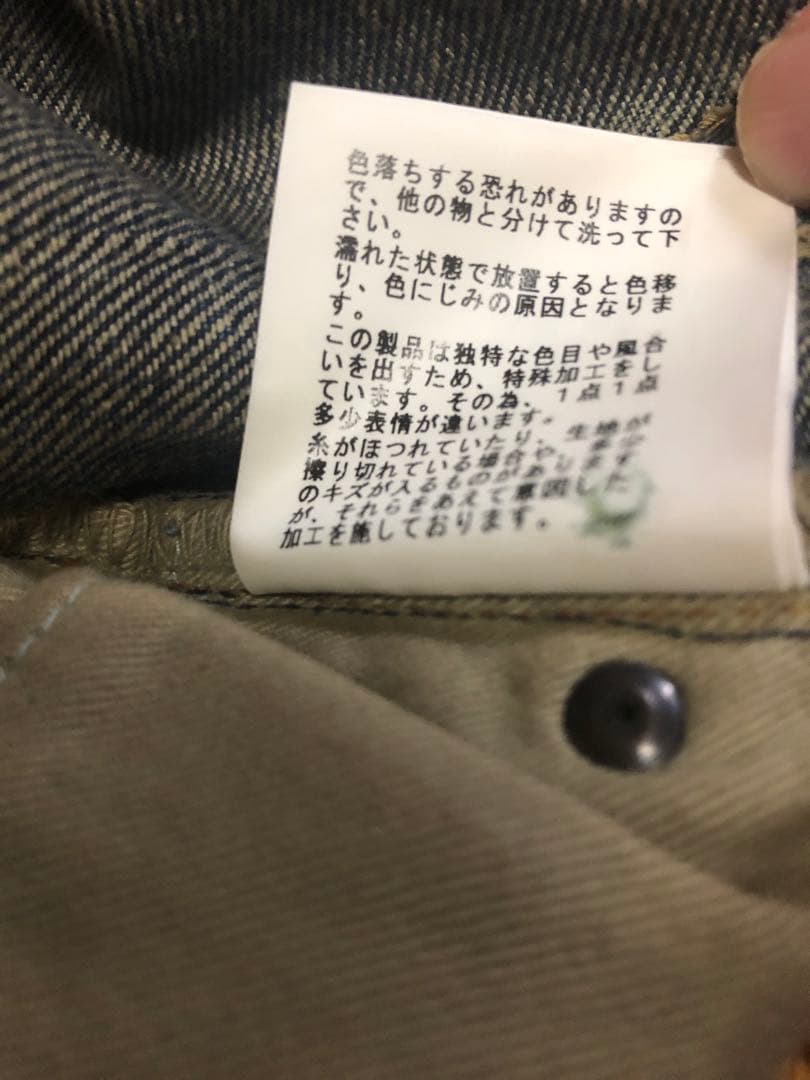 色落ちする恐れがありますの
で、他の物と分けて洗って下
さい。
濡れた状態で放置すると色移
り、色にじみの原因となりま
す。
この製品は独特な色目や風合
いを出すため、特殊加工をし
ています。その為、1点1点
多少表情が違います。
糸がほつれていたり、生地が
擦り切れている場合や、多少
のキズが入るものがあります
が、それらをあえて意図した
加工を施しております。